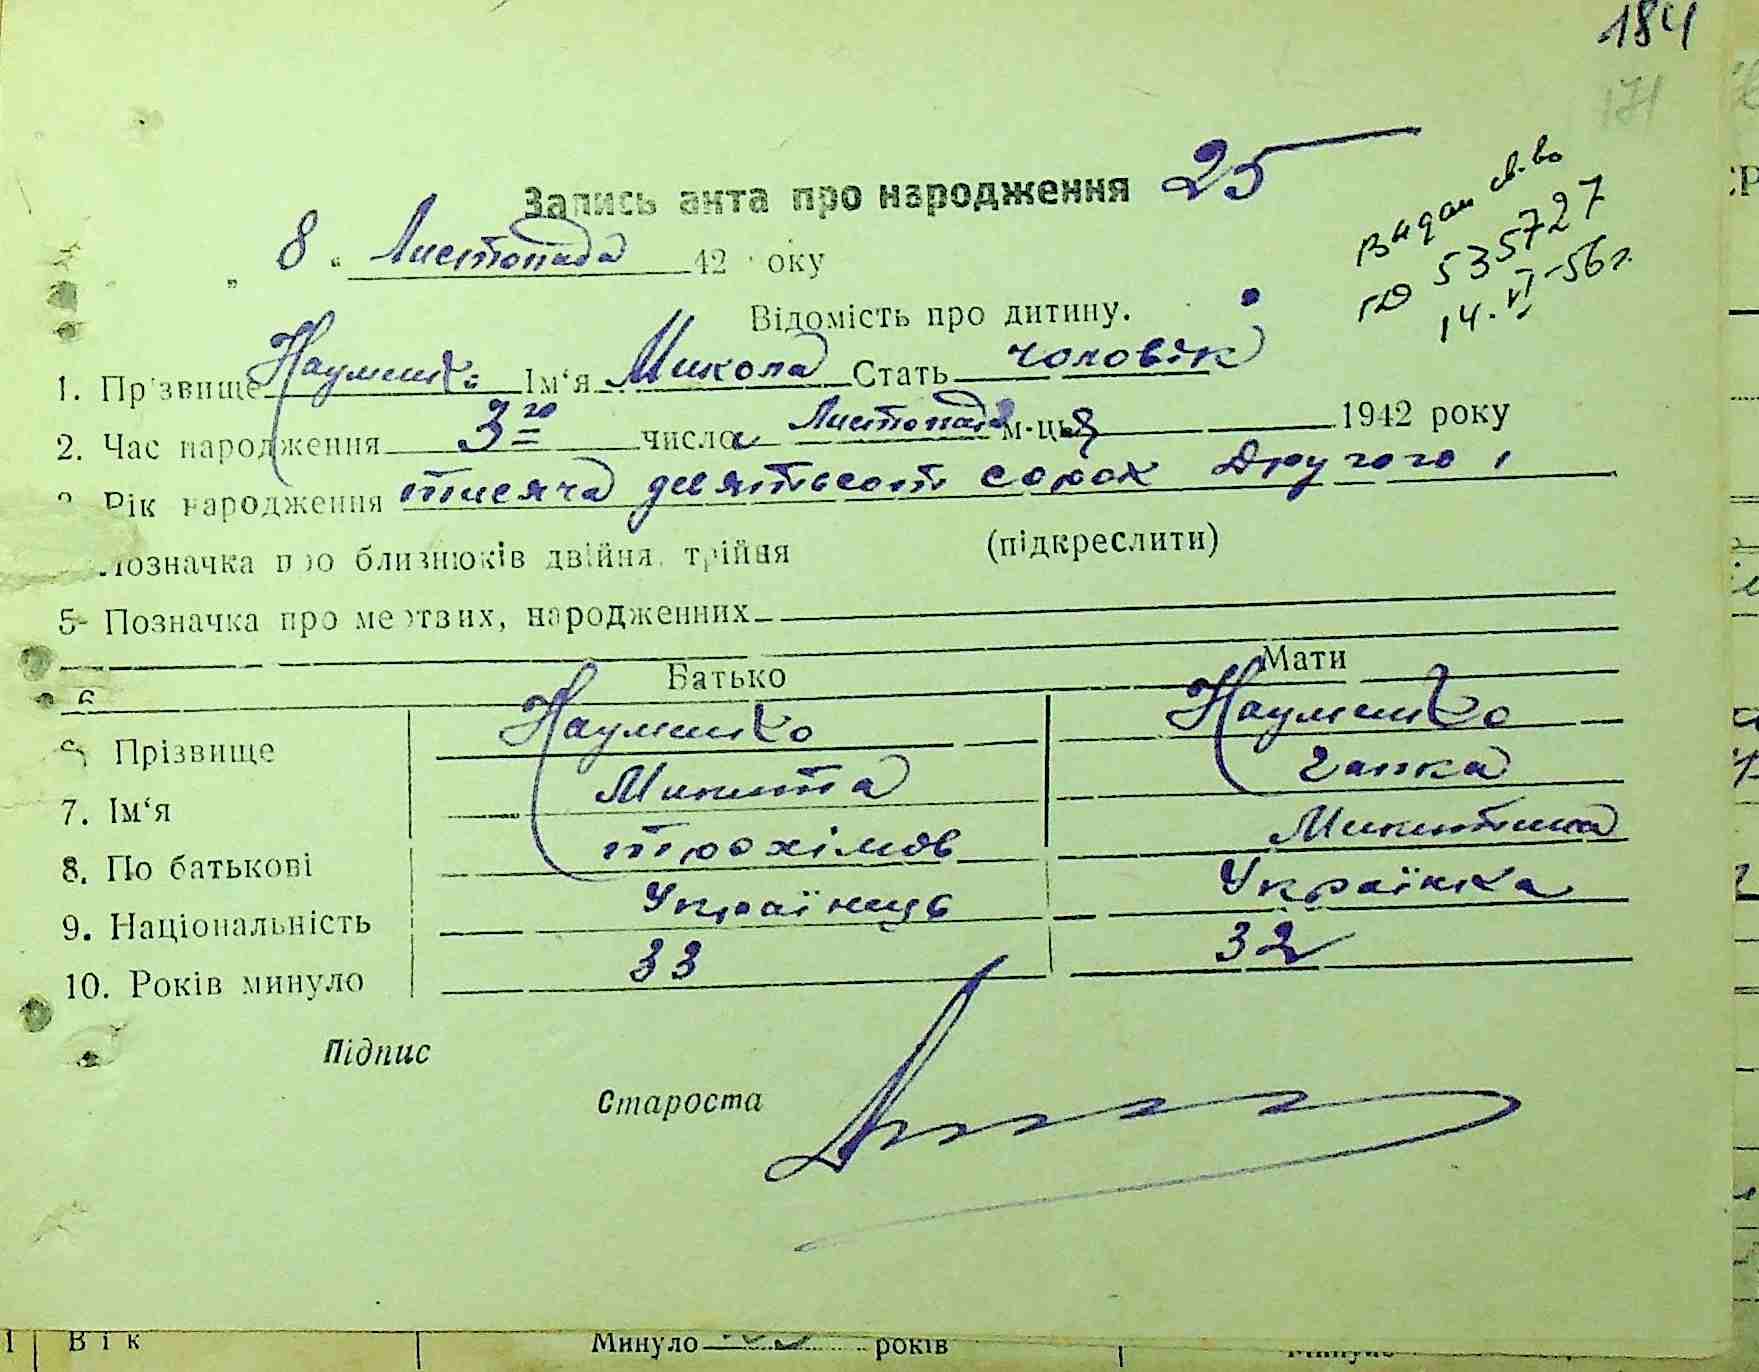 184
171
Запись акта про народження 25
Видан св-во
ГЮ 535727
14.VI-56г.
„ 8 " Листопада 42 року
Відомість про дитину.
1. Прізвище Науменко Ім'я Микола Стать чоловік
2. Час народження 3го числа Листопада м-ця 1942 року
3. Рік народження тисяча девятьсот сорок Другого
Позначка про близнюків двійня, трійня (підкреслити)
5- Позначка про мертвих, народженних
6 Батько Мати
Прізвище Науменко Науменко
7. Ім'я Микита Ганка
8. По батькові Трохімов Микитина
9. Національність Українець Українка
10. Років минуло 33 32
Підпис
Староста
Вік Минуло років